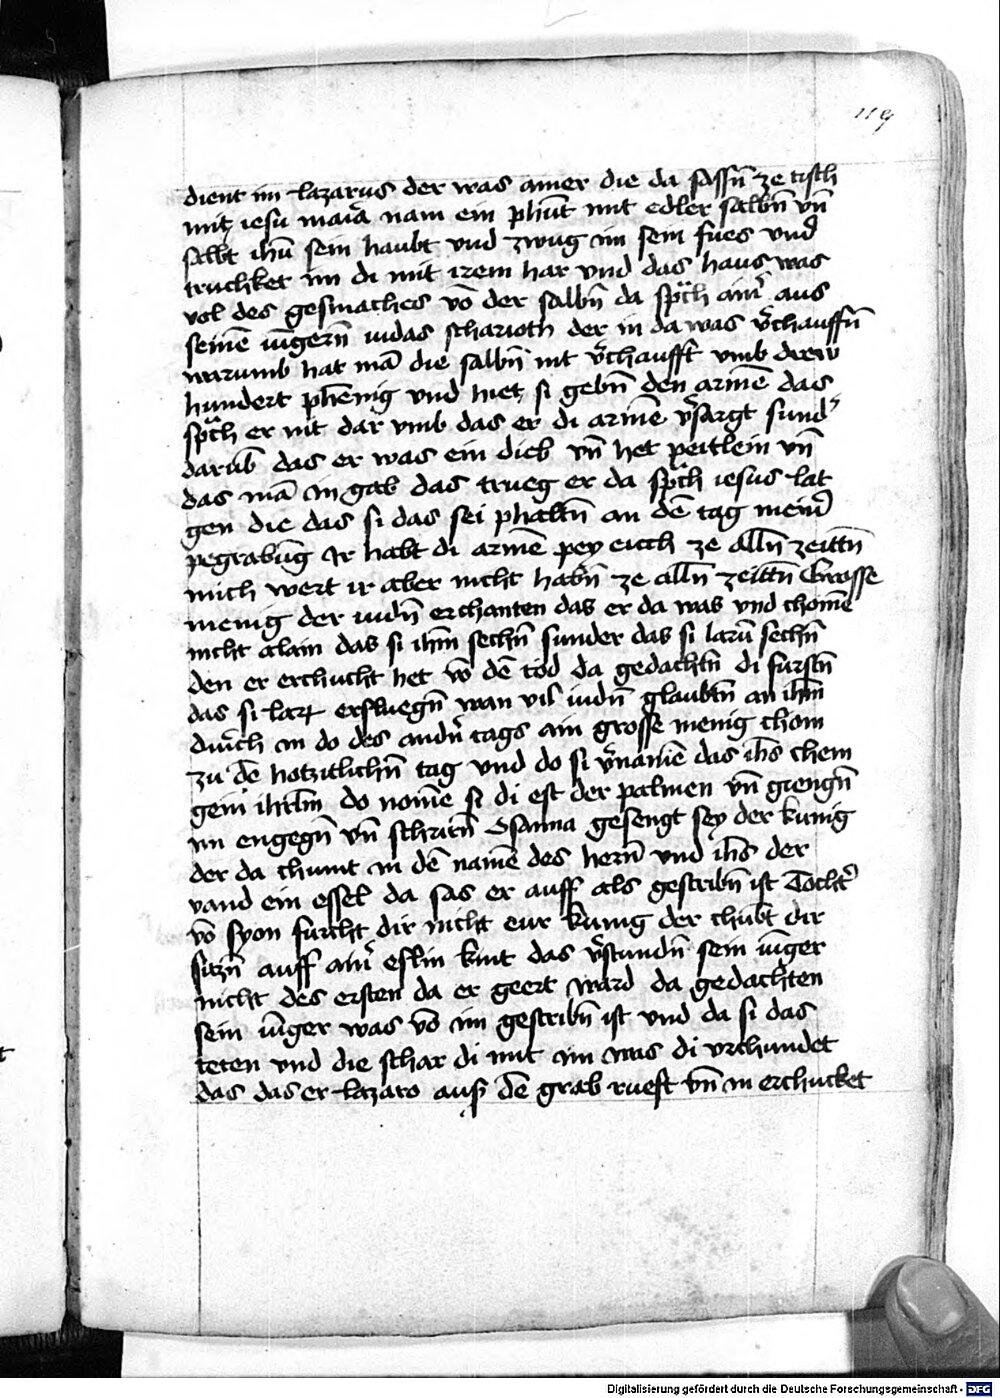 119
dient im lazarus der was ainer die da sassn̄ ze tisch
mit iesu maria nam ein phūt mit edler salbn̄ vn̄
salbt ihū sein haubt vnd zwug im sein fues vnd
truchket im di mit irem har vnd das haus was
vol des gesmaches vō der salbn̄ da sprach ainr aus
seinē iūgern̄ iudas scharioth der in da was vrchauffn̄
warumb hat mā die salbn̄ nit vrchaufft vmb drew
hundert phēnig vnd hiet si gebn̄ den armē das
sprach er nit dar vmb das er di armē vrsargt sund
darūb das er was ein dieb vn̄ het peitlein vn̄
das mā in gab das trueg er da sprach iesus lat
gen die das si das sei phaltn̄ an dē tag meinr
pegrabūg Ir habt di armē pey euch ze alln̄ zeittn̄
mich wert ir aber nicht habn̄ ze alln̄ zeittn̄ Grosse
menig der iudn̄ erchanten das er da was vnd chomē
nicht alain das si ihm̄ sechn̄ sunder das si larū sechn̄
den er erchucht het vō dē tod da gedachtn̄ di fursn̄
das si laz erslluegn̄ wan vil iudn̄ glaubtn̄ an ihm̄
durich in do des andrn̄ tags ain grosse menig chom
zu dē hotzitlichn̄ tag vnd do si vrnamē das ihs̄ chem
gein ihrlm̄ do nomē si di est der palmen vn̄ giengn̄
im engegn̄ vn̄ schrirn̄ Osanna gesengt sey der kunig
der da chumt in dē namē des hern̄ vnd ihs̄ der
vand ein essel da sas er auff als gestribn̄ ist Tochtr
vō syon furcht dir nicht eur kunig der chūbt dir
sitzn̄ auff ainr eslin kint das vrstundn̄ sein iūger
nicht des ersten da er geert ward da gedachten
sein iūger was vō im gestribn̄ ist vnd da si das
teten vnd die schar di mit im was di vrchundet
das das er lazaro auß dē grab rueft vn̄ in erchucket
Digitalisierung gefördert durch die Deutsche Forschungsgemeinschaft - DFG